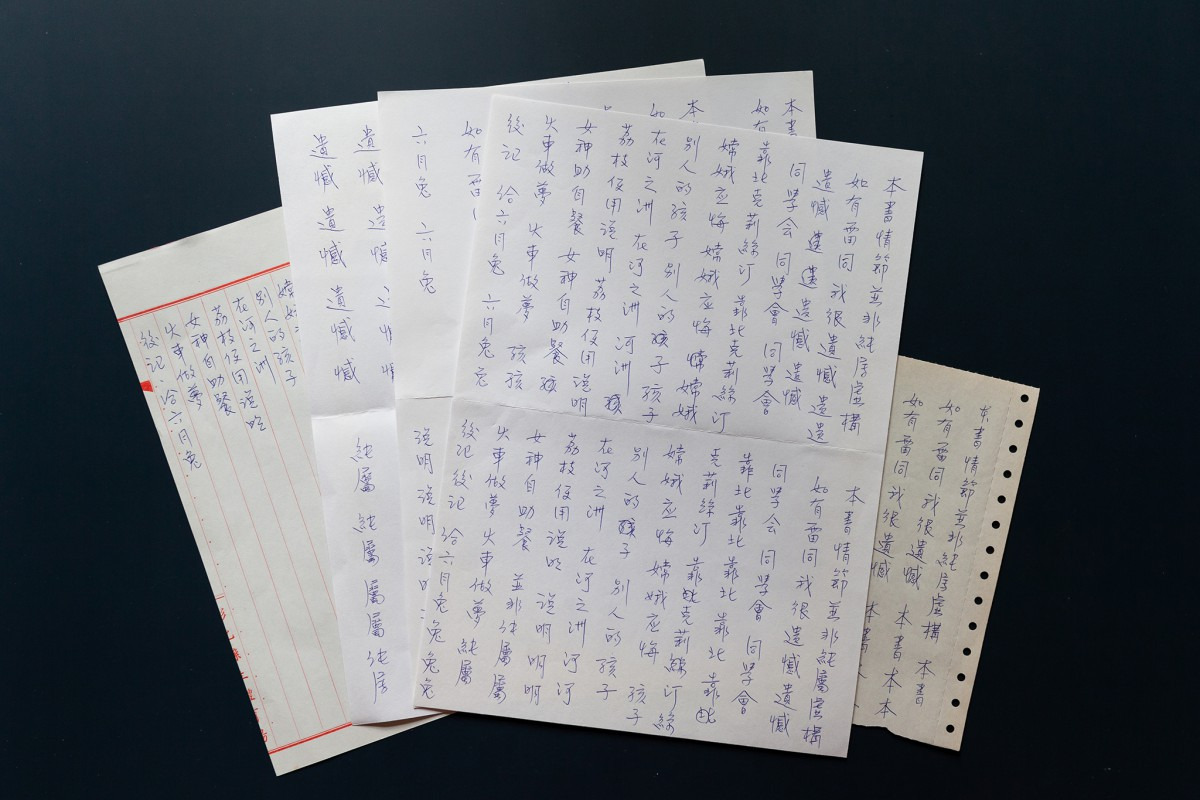 本書情節並非純属虛構
如有雷同我很遺憾遺遺
遺憾 遺 遺遺憾遺憾
同學会 同學會 同學會
靠北克莉絲汀 靠北克莉絲汀
嫦娥应悔嫦娥应悔 嫦嫦娥
別人的孩子 別人的孩子孩子
在河之洲 在河之洲 河洲
荔枝使用説明 荔枝使用説明
女神助自餐 女神自助餐
火車做夢 火車做夢 孩孩
後记 给六月兔 六月兔
本書情節並非純屬虛構
如有雷同我很遺憾遺憾
同學会 同學會 同學會
靠北靠北 靠北 靠北 靠北
克莉絲汀 靠北克莉絲汀絲
嫦娥应悔 嫦娥应悔 孩子
別人的孩子 別人的孩子
在河之洲 在河之洲 河河
荔枝使用説明 説明明明
女神自助餐 並非純屬屬
火車做夢 火車做夢 純屬
後记後记 给六月兔兔兔兔
本書
如有
如有雷
六月兔 六月兔
説明説明説明
遺憾 遺憾
遺憾 遺憾 遺憾 憾
純屬 純屬 屬屬純屬
別人的孩子
在河之洲
荔枝使用説明
女神自助餐
火車做夢
後记 给六月兔
本書情節並非純属虛構 本書
如有雷同我很遺憾 本書本本
如有雷同我很遺憾 本書